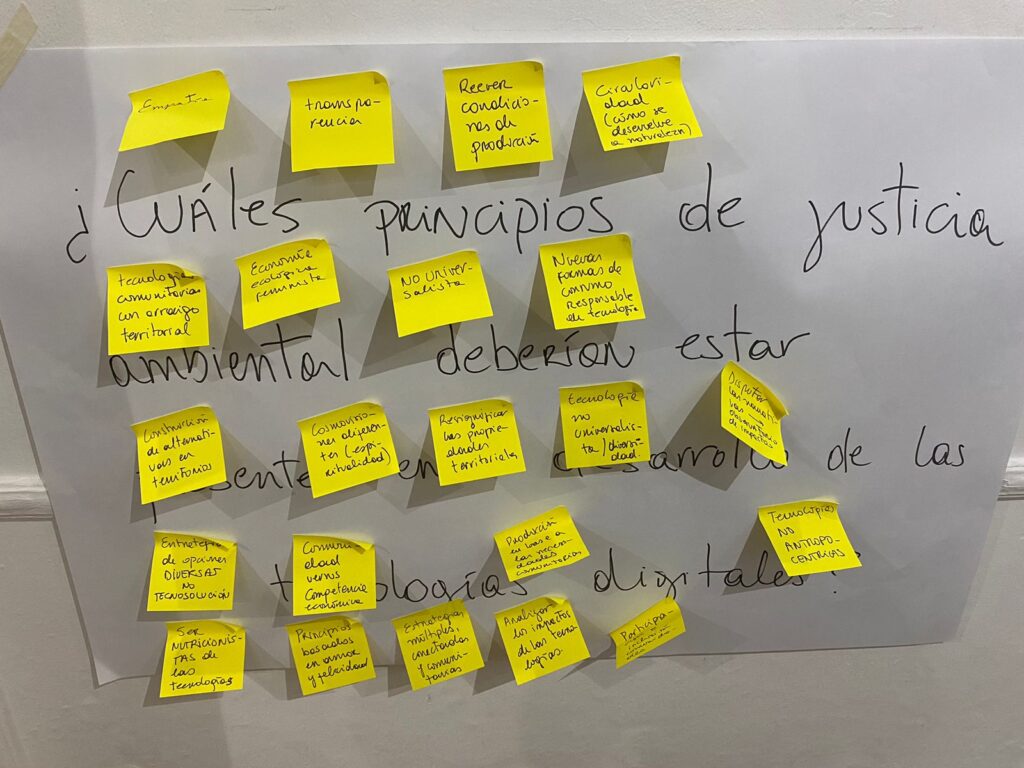 transpa-
rencia
Reever
condicio-
nes de
producción
Circulari-
dad
(cómo se
desenvolve
a naturaleza)
¿CUÁLES PRINCIPIOS de justicia
tecnologías
comunitarias
con arraigo
territorial
Economía
ecológica
feminista
NO UNIVER-
salista
Nuevas
formas de
consumo
responsable
de tecnología
ambiental deberían estar
Construcción
de alternati-
vas en
territorios
Cosmovisio-
nes diferen-
tes (espi-
ritualidad)
Resignificar
las propie-
dades
territoriales
tecnología
no
universalis-
ta (diversi-
dad.
Disputar
desarrollo de las
Entretejido
de opciones
DIVERSAS
NO
TECNOSOLUCIÓN
Comuni-
dad
versus
Competencia
económica
Producción
en base a
las necesi-
dades
comunitarias
Tecnologías
NO
ANTROPO-
CENTRICAS
digitales?
SER
NUTRICIONIS-
TAS de
las
tecnologías
Principios
basados
en amor
y felicidad
Estrategias
múltiples,
conectadas
y comuni-
tarias
Analizar
los impactos
de las tecno-
logías.
Participa-